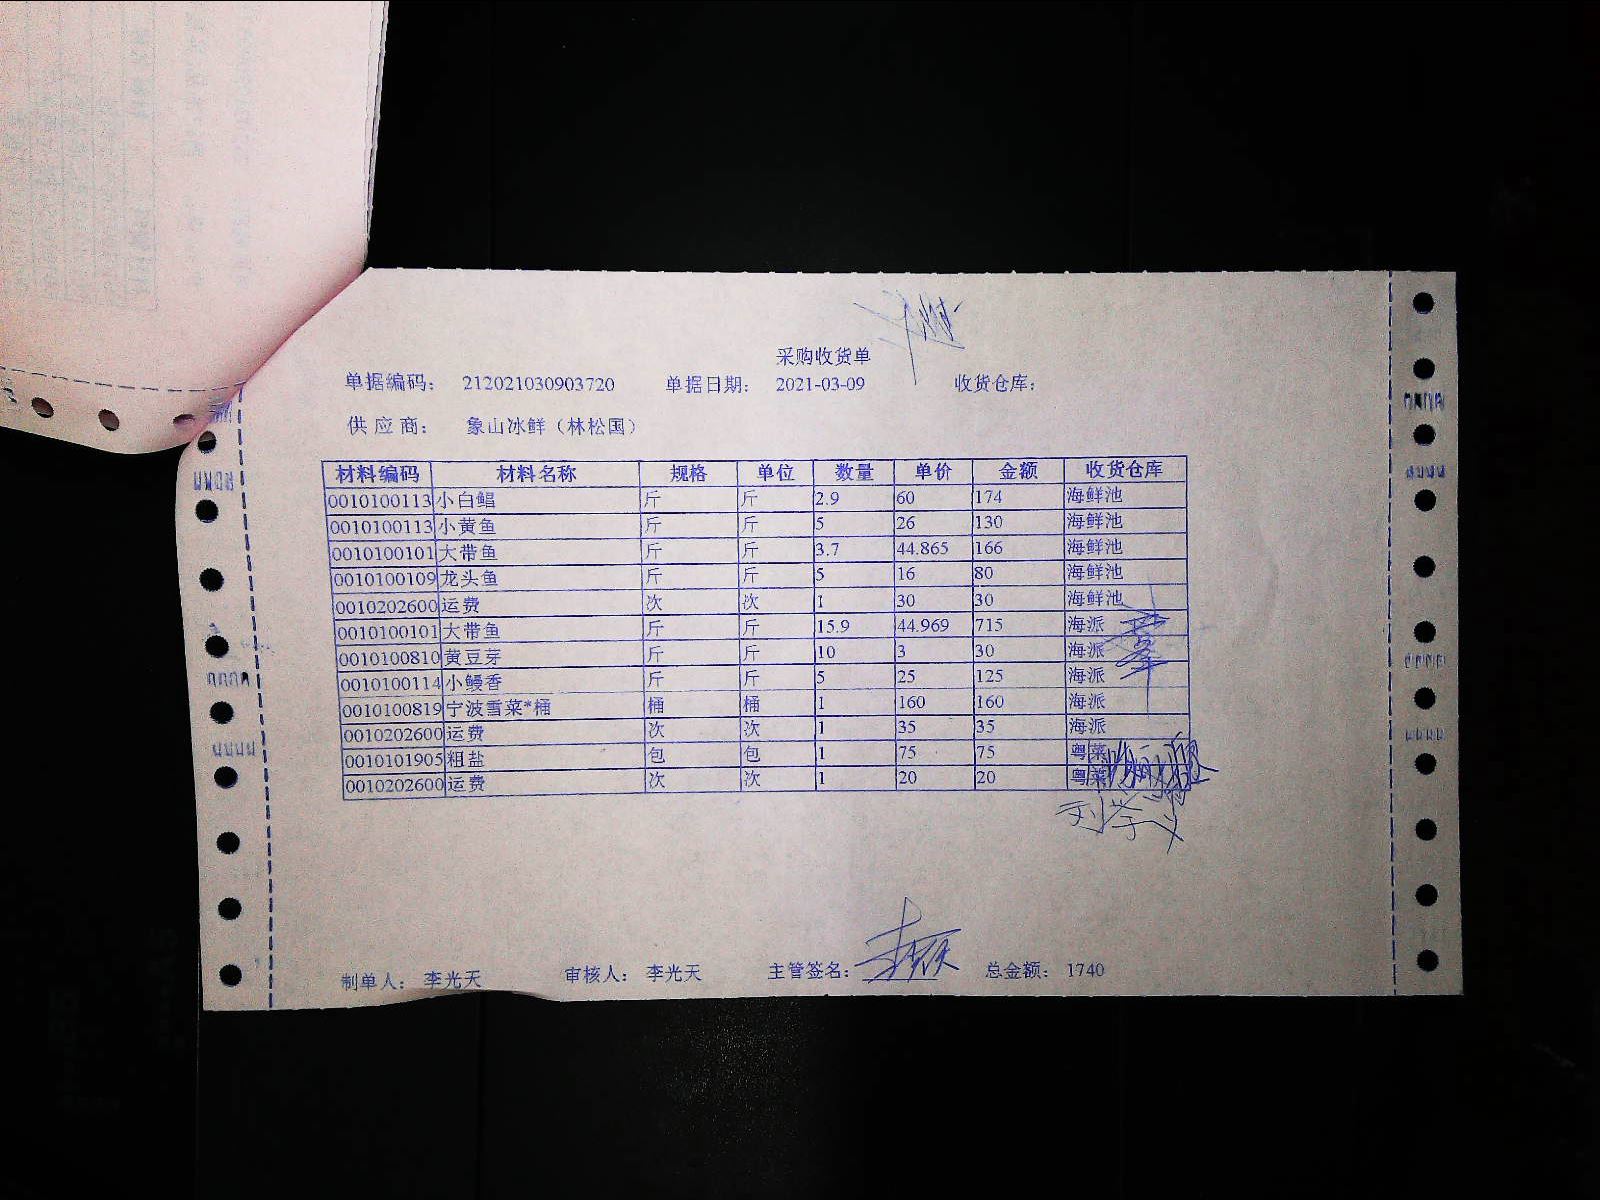 采购收货单
单据编码: 212021030903720 单据日期: 2021-03-09 收货仓库:
供应商: 象山冰鲜（林松国）
材料编码 材料名称 规格 单位 数量 单价 金额 收货仓库
0010100113 小白鲳 斤 斤 2.9 60 174 海鲜池
0010100113 小黄鱼 斤 斤 5 26 130 海鲜池
0010100101 大带鱼 斤 斤 3.7 44.865 166 海鲜池
0010100109 龙头鱼 斤 斤 5 16 80 海鲜池
0010202600 运费 次 次 1 30 30 海鲜池
0010100101 大带鱼 斤 斤 15.9 44.969 715 海派
0010100810 黄豆芽 斤 斤 10 3 30 海派
0010100114 小鳗香 斤 斤 5 25 125 海派
0010100819 宁波雪菜*桶 桶 桶 1 160 160 海派
0010202600 运费 次 次 1 35 35 海派
0010101905 粗盐 包 包 1 75 75 粤菜
0010202600 运费 次 次 1 20 20 粤菜
制单人: 李光天 审核人: 李光天 主管签名: 总金额: 1740